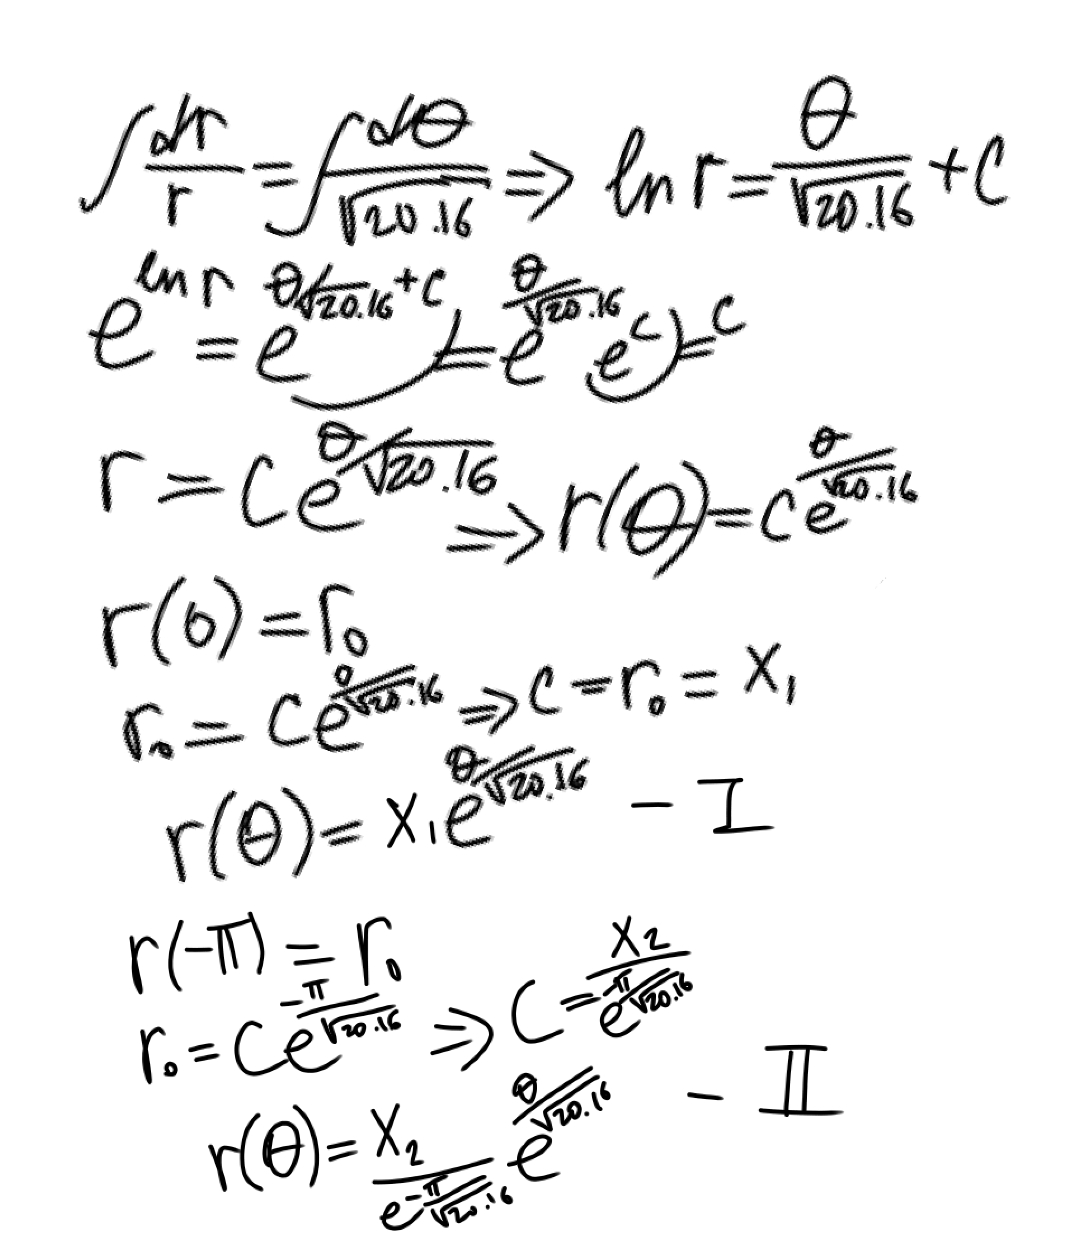 ∫ dr/r = ∫ dθ/√20.16 ⇒ ln r = θ/√20.16 + C
e^(ln r) = e^(θ/√20.16 + C) = e^(θ/√20.16) e^C = C
r = C e^(θ/√20.16) ⇒ r(θ) = C e^(θ/√20.16)
r(0) = r₀
r₀ = C e^(0/√20.16) ⇒ C = r₀ = X₁
r(θ) = X₁ e^(θ/√20.16) - I
r(-π) = r₀
r₀ = C e^(-π/√20.16) ⇒ C = X₂/e^(-π/√20.16)
r(θ) = X₂/e^(-π/√20.16) e^(θ/√20.16) - II